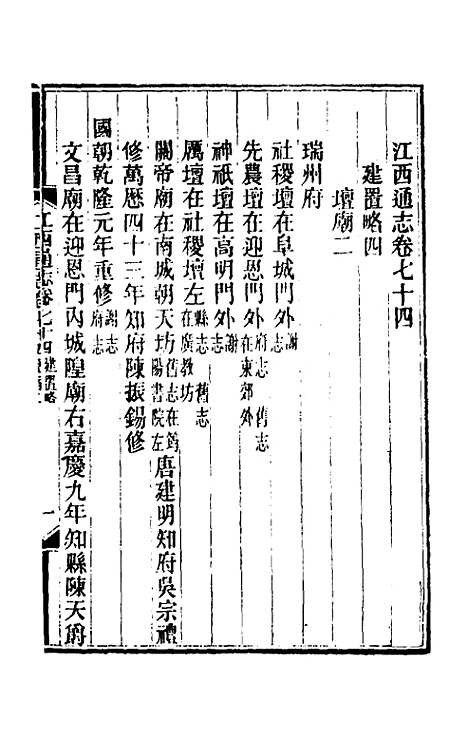 江西通志卷七十四
建置略四
壇廟二
瑞州府
社稷壇在阜城門外謝志
先農壇在迎恩門外府志舊志在東郊外
神祇壇在高明門外謝志
厲壇在社稷壇左縣志舊志在廣教坊
關帝廟在南城朝天坊舊志在筠陽書院左唐建明知府吳宗禮
修萬歷四十三年知府陳振錫修
國朝乾隆元年重修謝志府志
文昌廟在迎恩門內城隍廟右嘉慶九年知縣陳天爵
江西通志卷七十四建置略
一